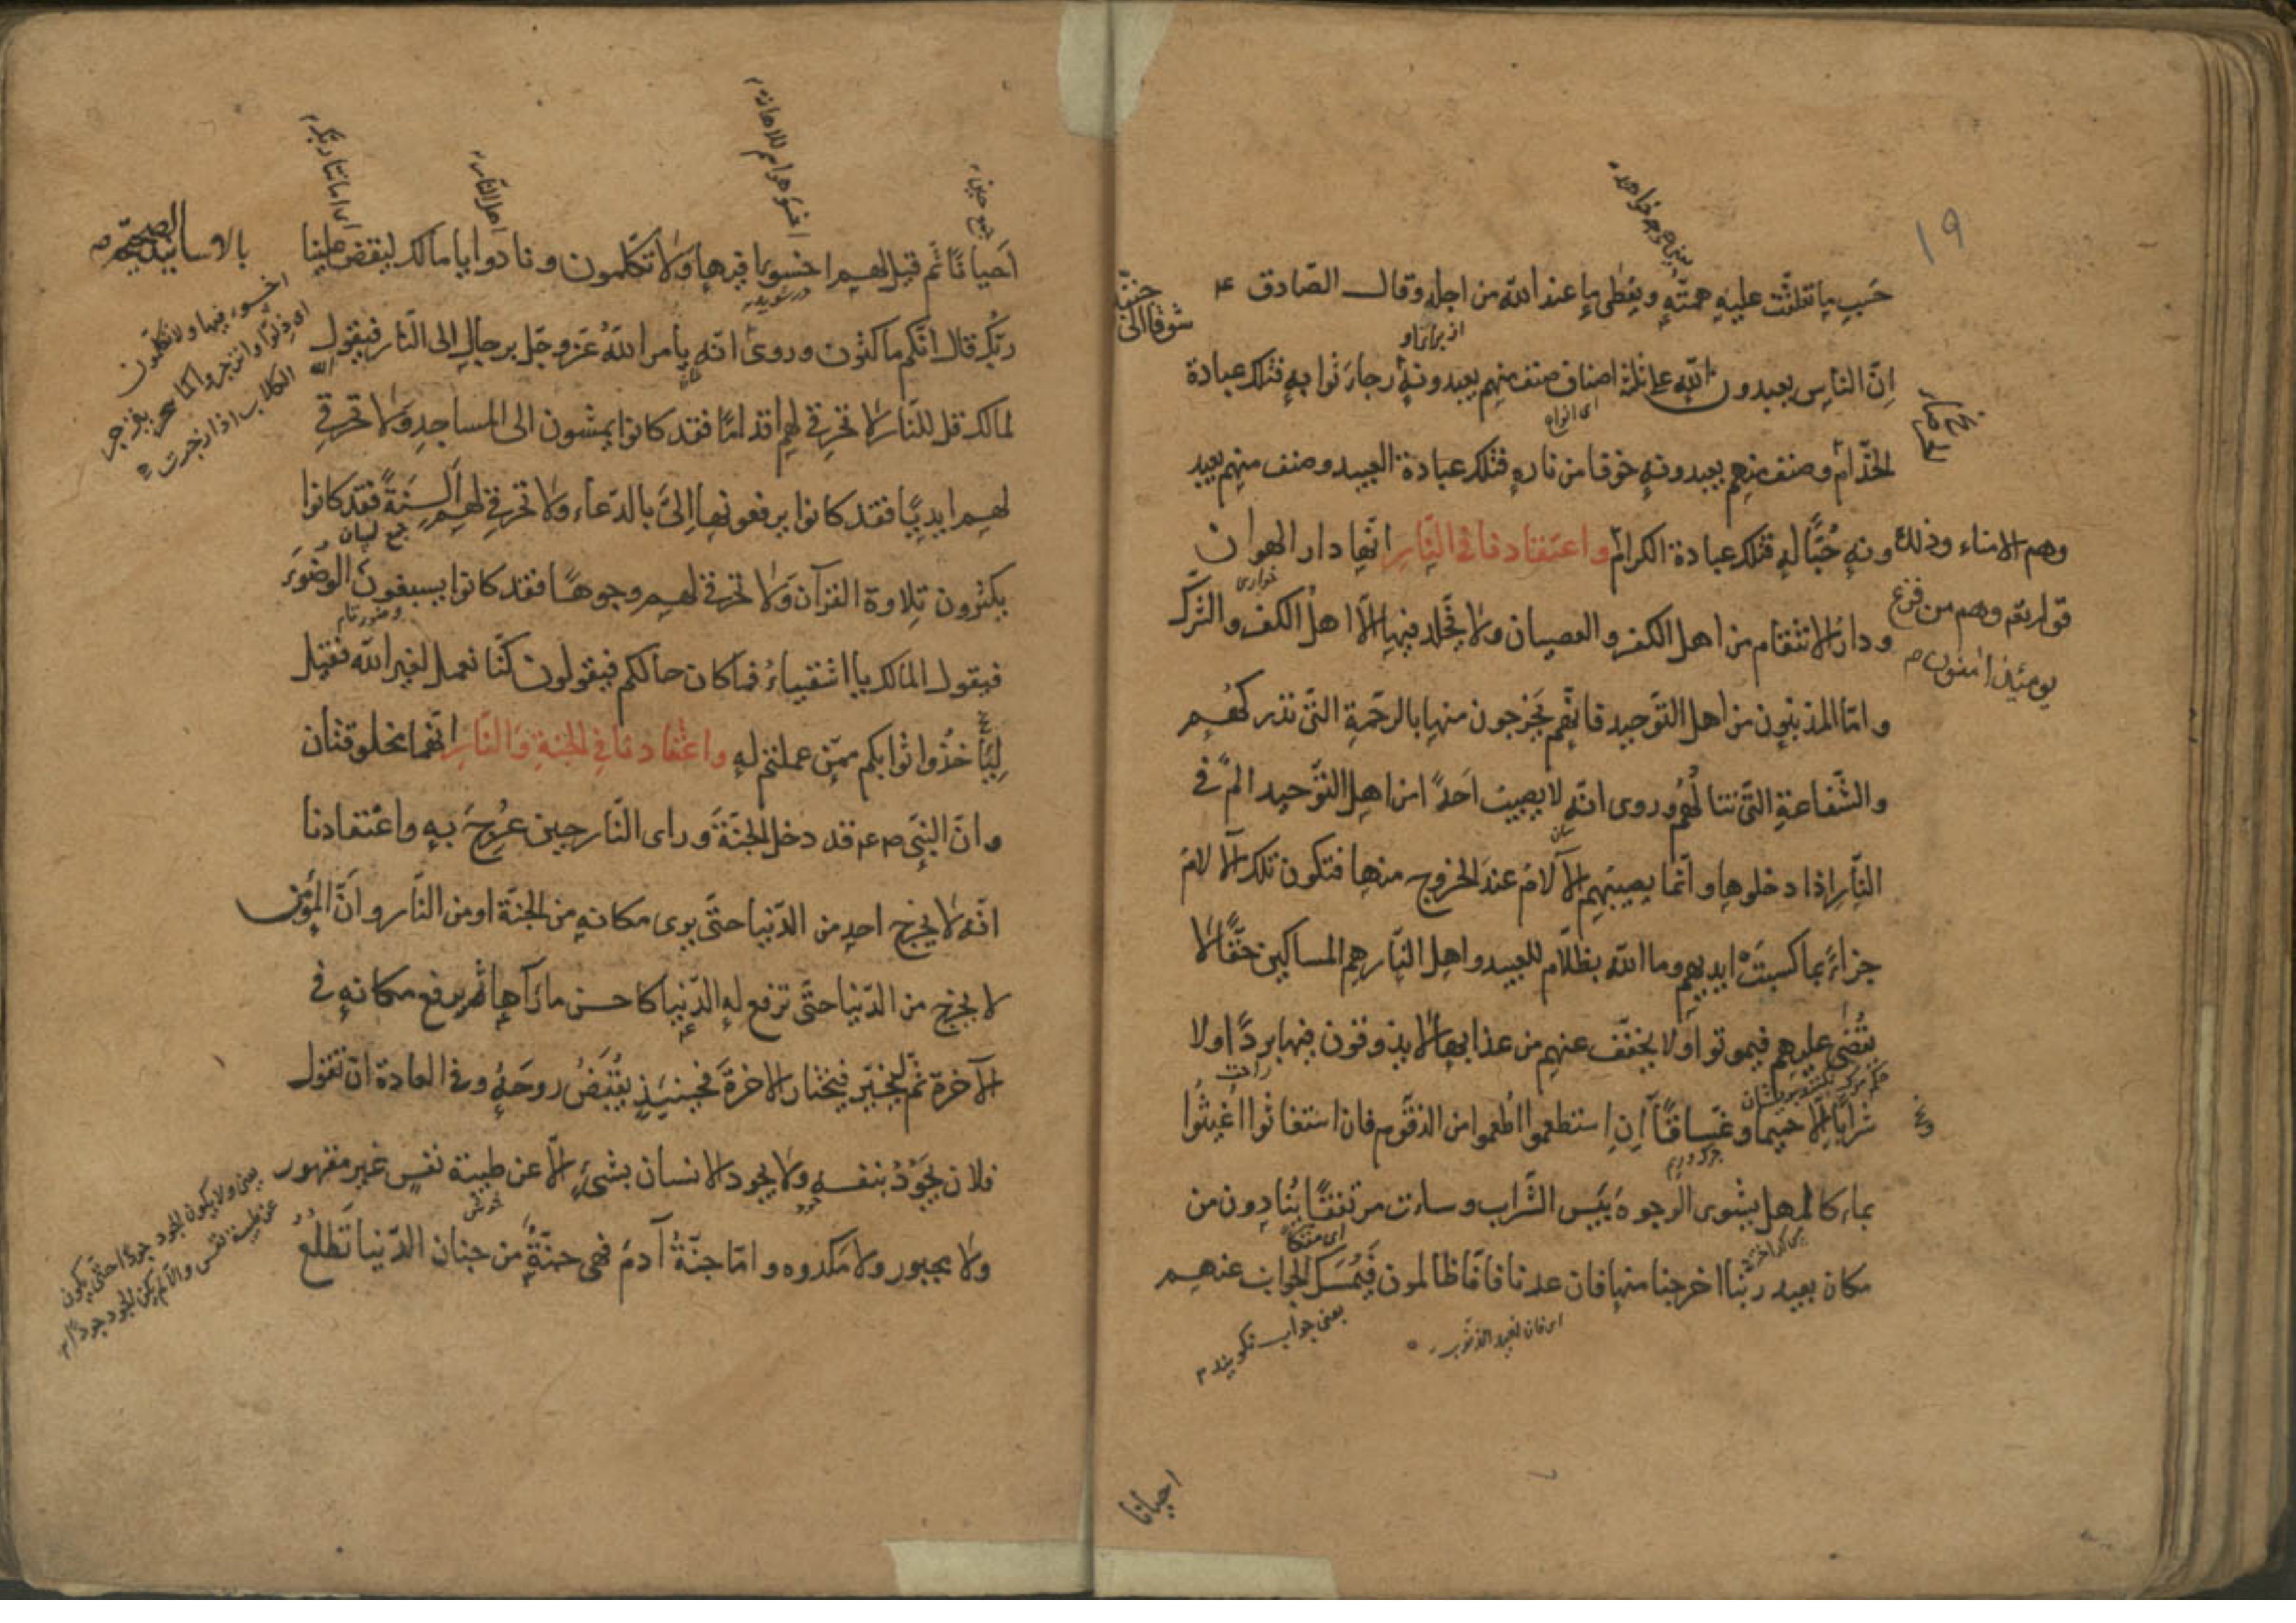 ١٩
حسب ما تعلقت عليه همته ويعطى ما عند الله من اجله وقال الصادق ع
انّ الناس يعبدون الله على ثلثة اصناف صنف منهم يعبدونه رجاء ثوابه فتلك عبادة
الخدّام وصنف منهم يعبدونه خوفا من ناره فتلك عبادة العبيد وصنف منهم يعبد
ونه حُبًّا له فتلك عبادة الكرام واعتقادنا فى النّار انّها دار الهوان
ودار الانتقام من اهل الكفر والعصيان ولا يخلد فيها الّا اهل الكفر والشرك
وامّا المذنبون من اهل التوحيد فانّهم يخرجون منها بالرحمة التى تدركهم
والشّفاعة التّى تنالهُم وروى انّه لا يصيب احدًا من اهل التّوحيد الم فى
النّار اذا دخلوها وانّما يصيبهم الآلام عند الخروج منها فتكون تلك الآلام
جزاءً بما كسبت ايديهم وما الله بظلّام للعبيد واهل النّار هم المساكين حقّا لا
يقضى عليهم فيموتوا ولا يخفّف عنهم من عذابها لا يذوقون فيها بردًا ولا
شرابًا الّا حميما وغسّاقًا ان استطعموا اُطعموا من الزقّوم فان استغاثوا اغيثوا
بماء كالمهل يشوى الوجوه بئس الشّراب وساءت مرتفقًا ينادون من
مكان بعيد ربنا اخرجنا منها فان عدنا فانّا ظالمون فيُمسَك الجواب عنهم
شوقا الى
جنته
از برای او
وهم الامناء وذلك
قوله تعم وهم من فزع
يومئذ امنون م
خوارى
راحت
اى متكأ
يعنى جواب نگويند م
احيانا
احيانًا ثم قيل لهم اخسوءا فيها ولا تكلّمون ونادوا يا مالك ليقض علينا
ربّك قال انّكم ماكثون وروى انّه يأمر الله عزّ وجلّ برجال الى النّار فيقول
لمالك قل للنّار لا تحرقى لهم اقدامًا فقد كانوا يمشون الى المساجد ولا تحرقى
لهم ايديًا فقد كانوا يرفعونها الىّ بالدّعاء ولا تحرقى لهم السنةً فقد كانوا
يكثرون تلاوة القرآن ولا تحرقى لهم وجوهًا فقد كانوا يسبغون الوضوء
فيقول المالك يا اشقياءُ فما كان حالكم فيقولون كنّا نعمل لغير الله فقيل
لتأخذوا ثوابكم ممّن عملتم له واعتقادنا فى الجنة والنّار انّهما مخلوقتان
وانّ النبّى ص ع قد دخل الجنّة وراى النّار حين عُرِجَ به واعتقادنا
انّه لا يخرج احد من الدّنيا حتّى يرى مكانه من الجنّة او من النّار وانّ المؤمن
لا يخرج من الدّنيا حتّى ترفع له الدّنيا كاحسن ما رآها ثم يرفع مكانه فى
الآخرة ثمّ يخيّر فيختار الاخرة فحينئذٍ يُقبَضُ روحهُ وفى العادة ان تقول
فلان يجود بنفسه ولا يجود الانسان بشئ الّا عن طيبة نفس غير مقهور
ولا مجبور ولا مكروه وامّا جنّة آدم فهى جنّة من جنان الدّنيا تطلع
بالاسانيد الصحيحة
جمع حين
اهل النّار
در شويد
جمع لسان
اخسوء فيها ولا تكلّمون
اى ذلّوا وانزجروا كما ينزجر
الكلاب اذا زجرت
يعنى ولا يكون الجود جودًا حتّى يكون
عن طيبة نفس والّا لم يكن الجود جودًا م